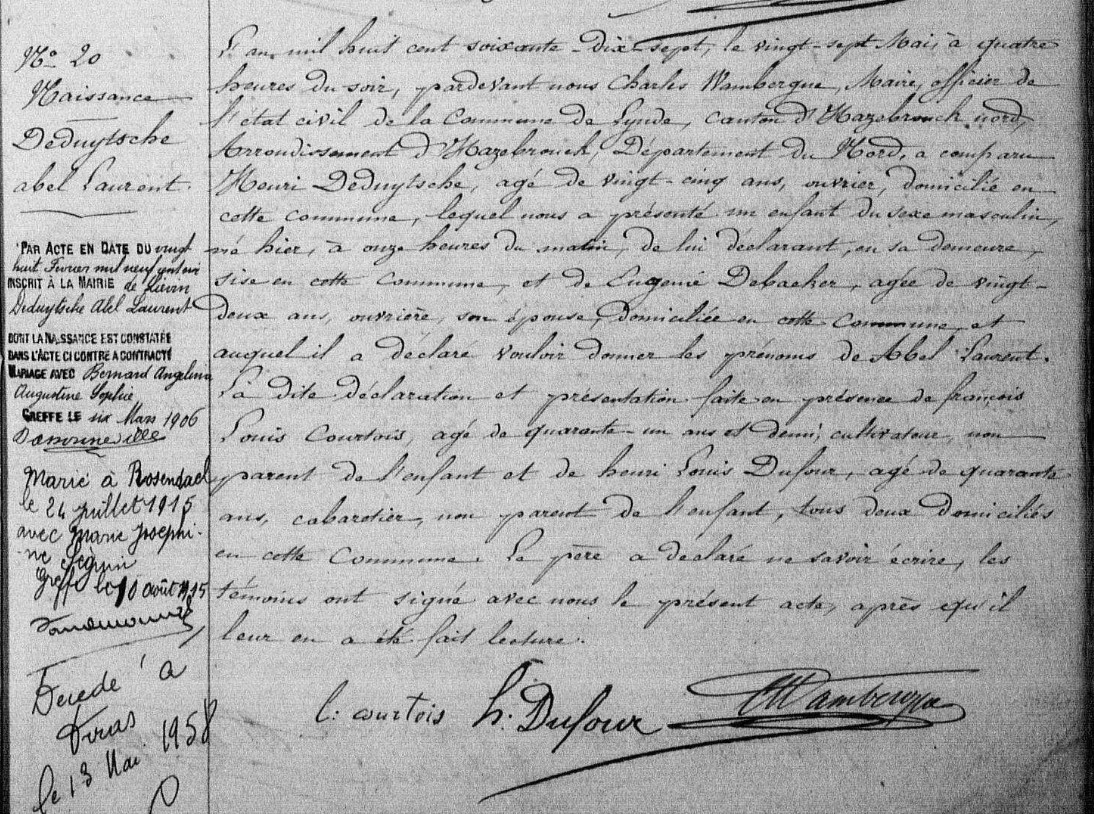 No 20
Naissance
Deduytsche
abel Laurent.
PAR ACTE EN DATE DU vingt
huit Fevrier mil neuf cent six
INSCRIT À LA MAIRIE de Lievin
Deduytsche Abel Laurent
DONT LA NAISSANCE EST CONSTATÉE
DANS L'ACTE CI CONTRE A CONTRACTÉ
MARIAGE AVEC Bernard Angelina
Augustine Sophie
GREFFE LE six Mars 1906
Marié à Rosendael
le 24 juillet 1915
avec Marie Josephi-
ne Seguin
Greffe le 10 août 1915
Décédé à
le 13 Mai 1958
L'an mil huit cent soixante-dix-sept, le vingt-sept Mai, à quatre
heures du soir, pardevant nous Charles Wambergue, Maire, officier de
l'état civil de la Commune de Lynde, canton d'Hazebrouck nord,
Arrondissement d'Hazebrouck, Département du Nord, a comparu
Henri Deduytsche, agé de vingt-cinq ans, ouvrier, domicilié en
cette commune, lequel nous a présenté un enfant du sexe masculin,
né hier, à onze heures du matin, de lui déclarant, en sa demeure,
sise en cette commune, et de Eugenie Debacker, agée de vingt-
deux ans, ouvrière, son épouse, domiciliée en cette Commune, et
auquel il a déclaré vouloir donner les prénoms de Abel Laurent.
La dite déclaration et présentation faite en présence de françois
Louis Courtois, agé de quarante-un ans et demi, cultivateur, non
parent de l'enfant et de henri Louis Dufour, agé de quarante
ans, cabaretier, non parent de l'enfant, tous deux domiciliés
en cette Commune. Le père a déclaré ne savoir écrire, les
témoins ont signé avec nous le présent acte, après qu'il
leur en a été fait lecture.
l: courtois h. Dufour CWambergue